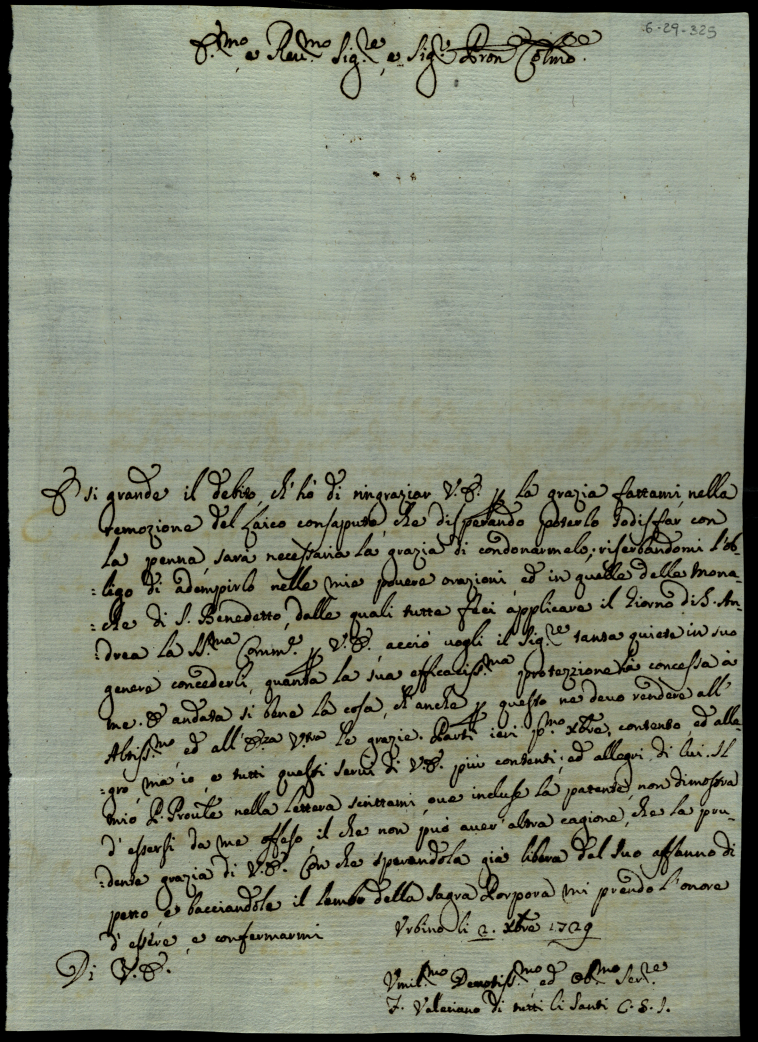 6-29-325
E.mo e Rev.mo Sig.re e Sig.r Pron Colmo.
È si grande il debito, ch'hò di ringraziar V.E. p la grazia fattami nella
remozione del Laico consaputo, che disperando poterlo sodisfar con
la penna, sarà necessaria la grazia di condonarmelo; riserbandomi l'ob-
:ligo di adempirlo nelle mie povere orazioni, ed in quelle delle Mona-
:che di S. Benedetto, dalle quali tutte feci applicare il giorno di S. An-
:drea la SS.ma Comm.e p V.E. acciò vogli il Sig.re tanta quiete in suo
genere concederli, quanta la sua efficaciss.ma protezzione hà concessa à
me. È andata si bene la cosa, ch'anche p questo ne devo rendere all'
Altiss.mo, ed all'Eza Vtra le grazie. Partì ieri p.mo Xbre, contento, ed alle-
:gro, ma io, e tutti questi servi di V.E. più contenti, ed allegri di lui. Il
mio P. Proule nella lettera scrittami, ove incluse la patente, non dimostra
d'essersi da me offeso, il che non può aver'altra cagione, che la pru-
:dente grazia di V.E. Con che sperandola già libera del suo affanno di
petto, e bacciandole il lembo della Sagra Porpora mi prendo l'onore
d'essere, e confermarmi
Urbino li 2. Xbre 1729
Di V.E.
Umil.mo Devotiss.mo, ed Ob.mo Ser.re
F. Valeriano di tutti li Santi C. S. I.